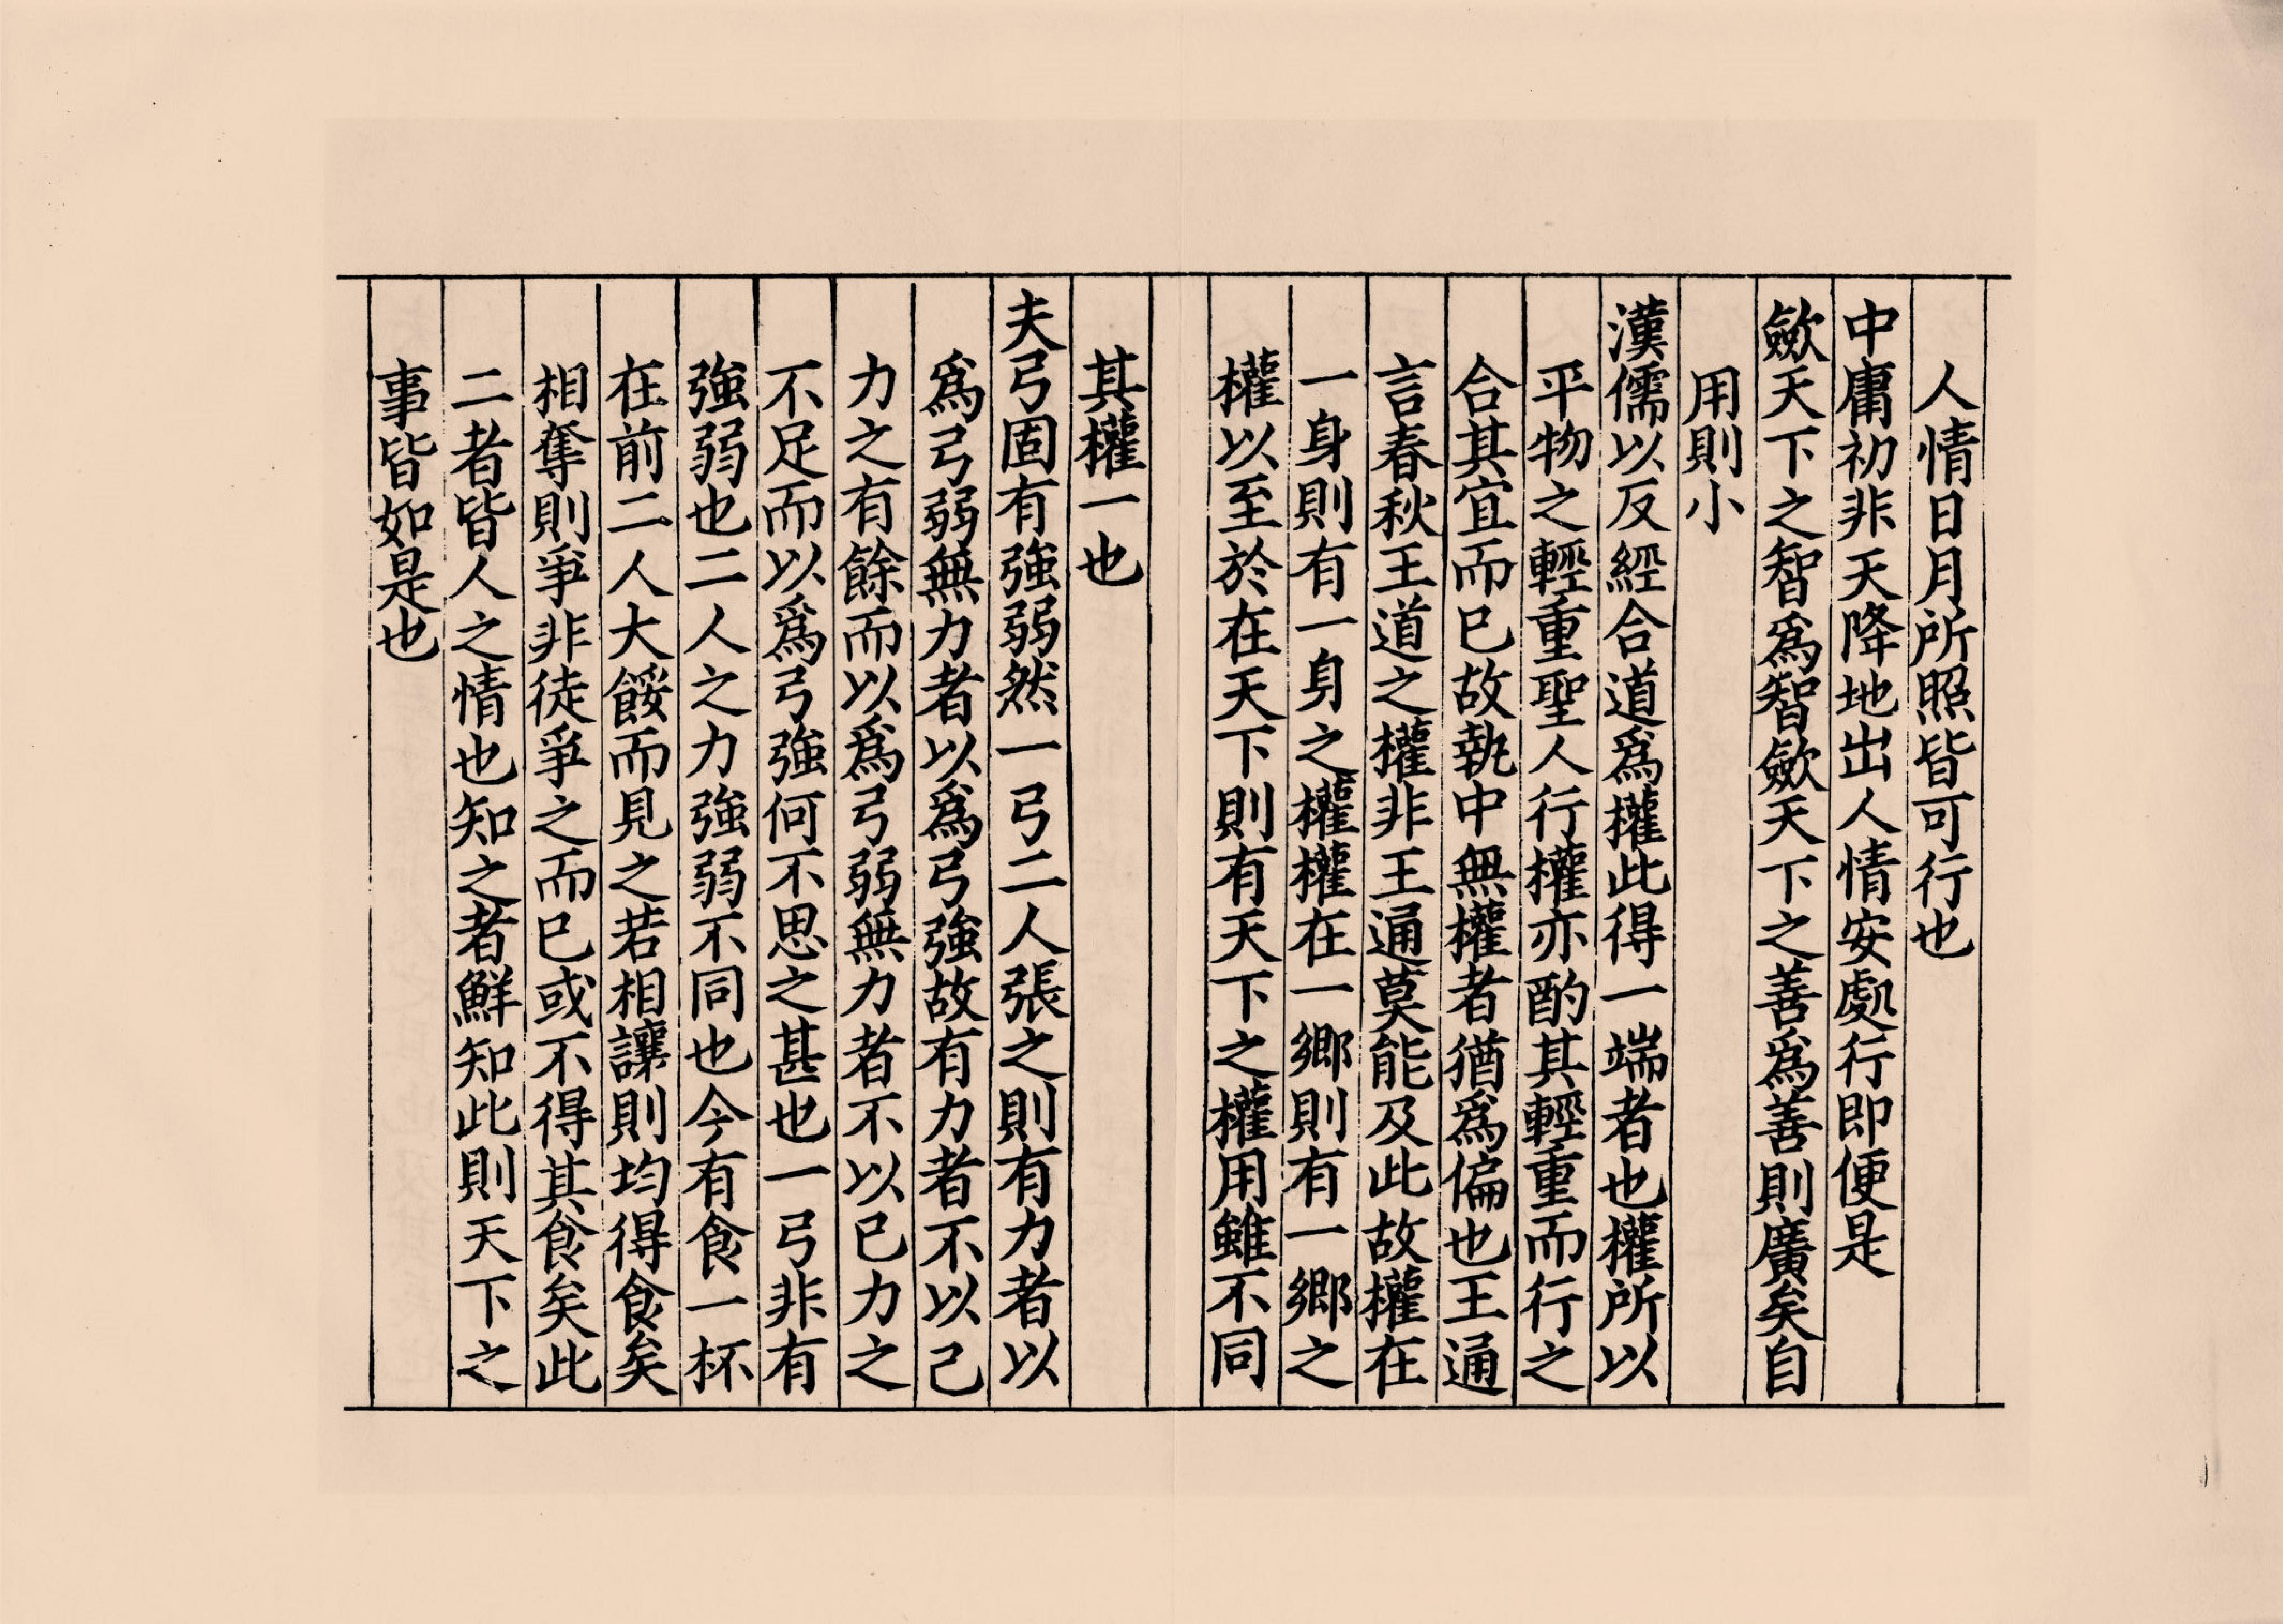 人情日月所照皆可行也
中庸初非天降地出人情安處行即便是
歛天下之智爲智歛天下之善爲善則廣矣自
用則小
漢儒以反經合道爲權此得一端者也權所以
平物之輕重聖人行權亦酌其輕重而行之
合其宜而已故執中無權者猶爲偏也王通
言春秋王道之權非王通莫能及此故權在
一身則有一身之權權在一鄉則有一鄉之
權以至於在天下則有天下之權用雖不同
其權一也
夫弓固有強弱然一弓二人張之則有力者以
爲弓弱無力者以爲弓強故有力者不以己
力之有餘而以爲弓弱無力者不以已力之
不足而以爲弓強何不思之甚也一弓非有
強弱也二人之力強弱不同也今有食一杯
在前二人大餒而見之若相讓則均得食矣
相奪則爭非徒爭之而已或不得其食矣此
二者皆人之情也知之者鮮知此則天下之
事皆如是也